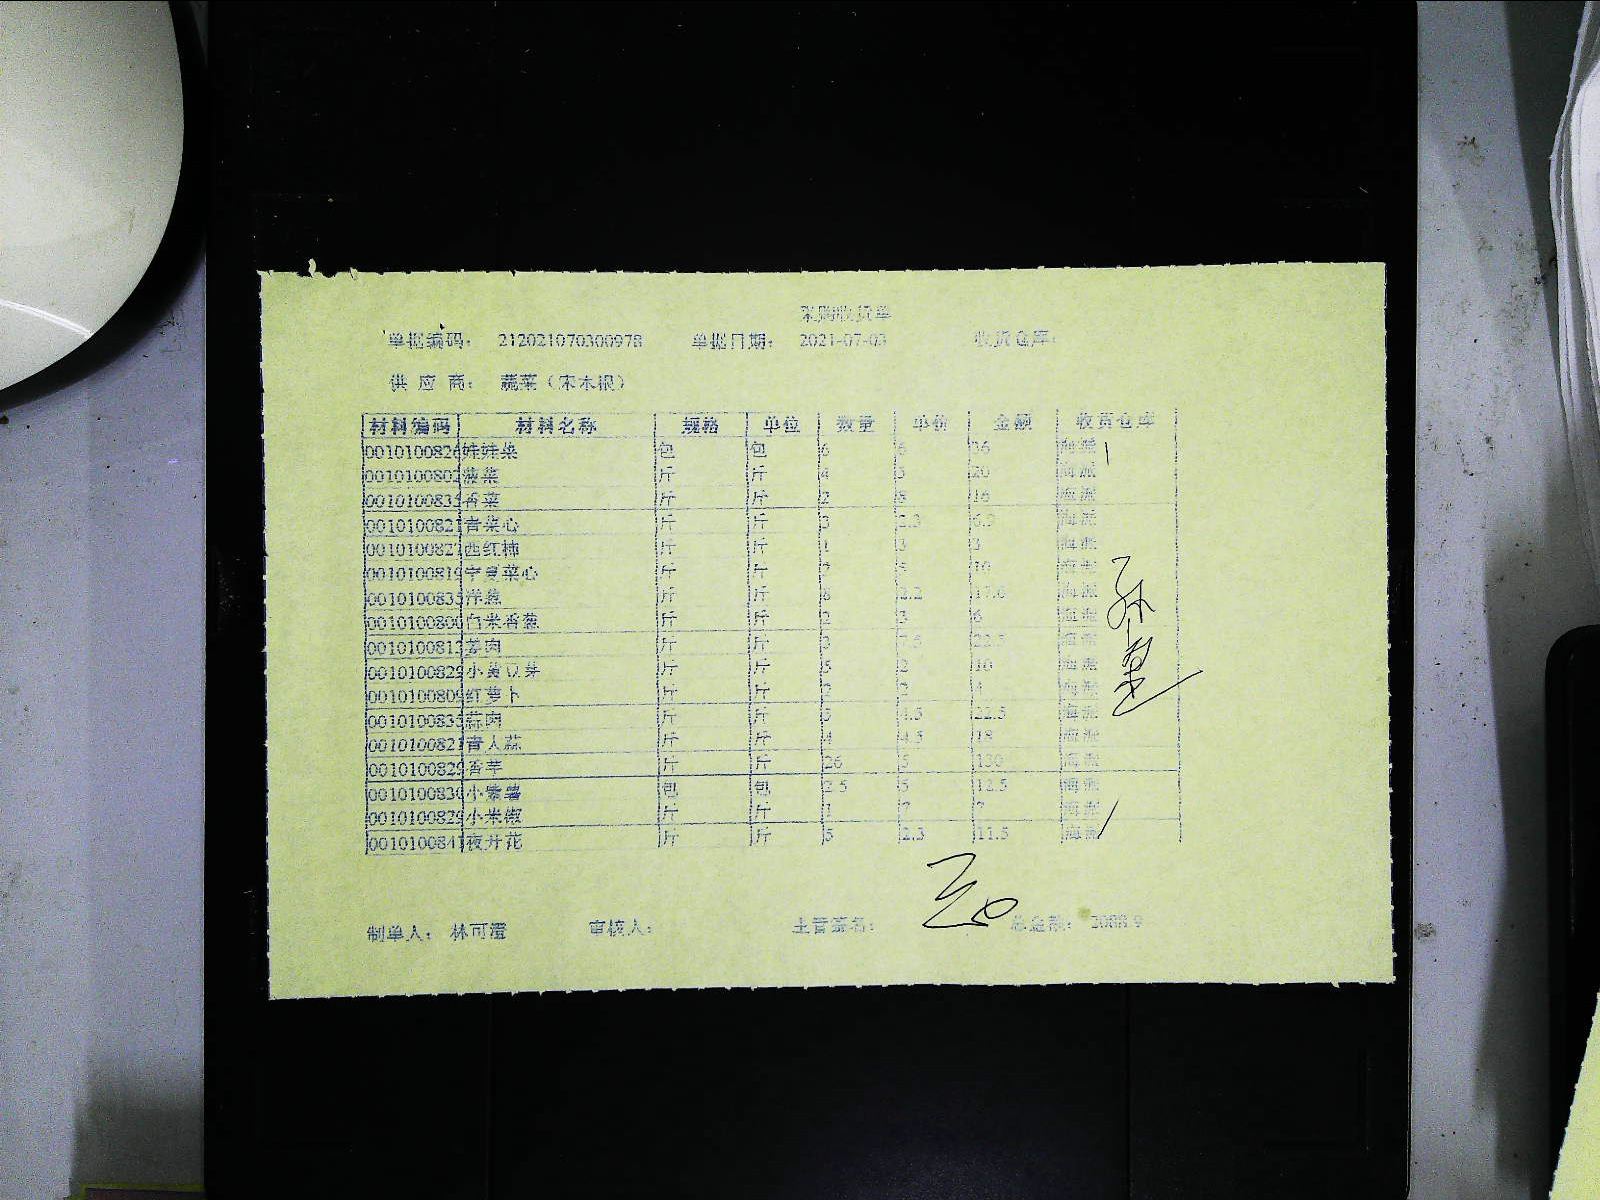 采购收货单
单据编码： 212021070300978 单据日期： 2021-07-03 收货仓库：
供 应 商： 蔬菜（宋木根）
材料编码 材料名称 规格 单位 数量 单价 金额 收货仓库
0010100826 娃娃菜 包 包 6 6 36 海派
0010100802 菠菜 斤 斤 4 5 20 海派
0010100835 香菜 斤 斤 2 8 16 海派
0010100821 青菜心 斤 斤 3 2.3 6.9 海派
0010100827 西红柿 斤 斤 1 3 3 海派
0010100819 宁夏菜心 斤 斤 2 5 10 海派
0010100835 洋葱 斤 斤 8 2.2 17.6 海派
0010100800 白米香葱 斤 斤 2 3 6 海派
0010100813 姜肉 斤 斤 3 7.5 22.5 海派
0010100829 小黄豆芽 斤 斤 5 2 10 海派
0010100809 红萝卜 斤 斤 2 2 4 海派
0010100835 蒜肉 斤 斤 5 4.5 22.5 海派
0010100821 青大蒜 斤 斤 4 4.5 18 海派
0010100829 香芋 斤 斤 26 5 130 海派
0010100830 小紫薯 包 包 2.5 5 12.5 海派
0010100829 小米椒 斤 斤 1 7 7 海派
0010100841 夜开花 斤 斤 5 2.3 11.5 海派
制单人： 林可澄 审核人： 主管签名： 总金额：